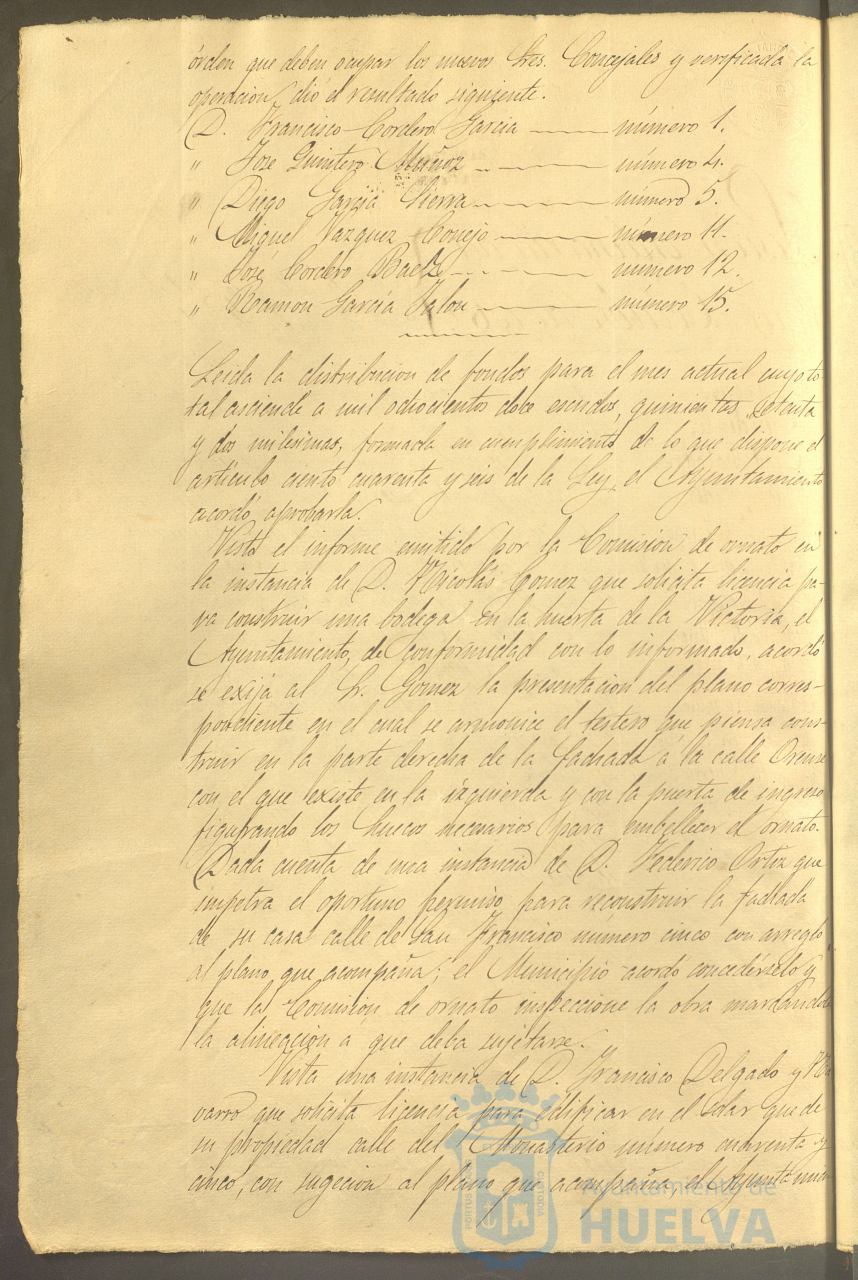 órden que deben ocupar los nuevos Sres. Concejales y verificada la
operacion dió el resultado siguiente.
D. Francisco Cordero Garcia —— número 1.
" Jose Quintero Muñoz —— número 4.
" Diego Garcia Sierra —— número 5.
" Miguel Vazquez Conejo —— número 11.
" José Cordero Baez —— número 12.
" Ramon Garcia Jalon —— número 15.
Leida la distribucion de fondos para el mes actual cuyo to-
tal asciende a mil ochocientos doce escudos, quinientas setenta
y dos milésimas, formada en cumplimiento de lo que dispone el
artículo ciento cuarenta y seis de la Ley, el Ayuntamiento
acordó aprobarla.
Visto el informe emitido por la Comision de ornato en
la instancia de D. Nicolás Gomez que solicita licencia pa-
ra construir una bodega en la huerta de la Victoria, el
Ayuntamiento, de conformidad con lo informado, acordó
se exija al Sr. Gomez la presentacion del plano corres-
pondiente en el cual se armonice el testero que piensa cons-
truir en la parte derecha de la fachada a la calle Orense
con el que existe en la izquierda y con la puerta de ingreso
figurando los huecos necesarios para embellecer el ornato.
Dada cuenta de una instancia de D. Federico Ortiz que
impetra el oportuno permiso para reconstruir la fachada
de su casa calle de San Francisco numero cinco con arreglo
al plano que acompaña; el Municipio acordó concedérselo y
que la Comision de ornato inspeccione la obra marcandole
la alineacion a que deba sujetarse.
Vista una instancia de D. Francisco Delgado y Na-
varro que solicita licencia para edificar en el solar que de
su propiedad calle del Monasterio numero cuarenta y
cinco, con sugecion al plano que acompaña el Ayuntamien
Ayuntamiento de
HUELVA